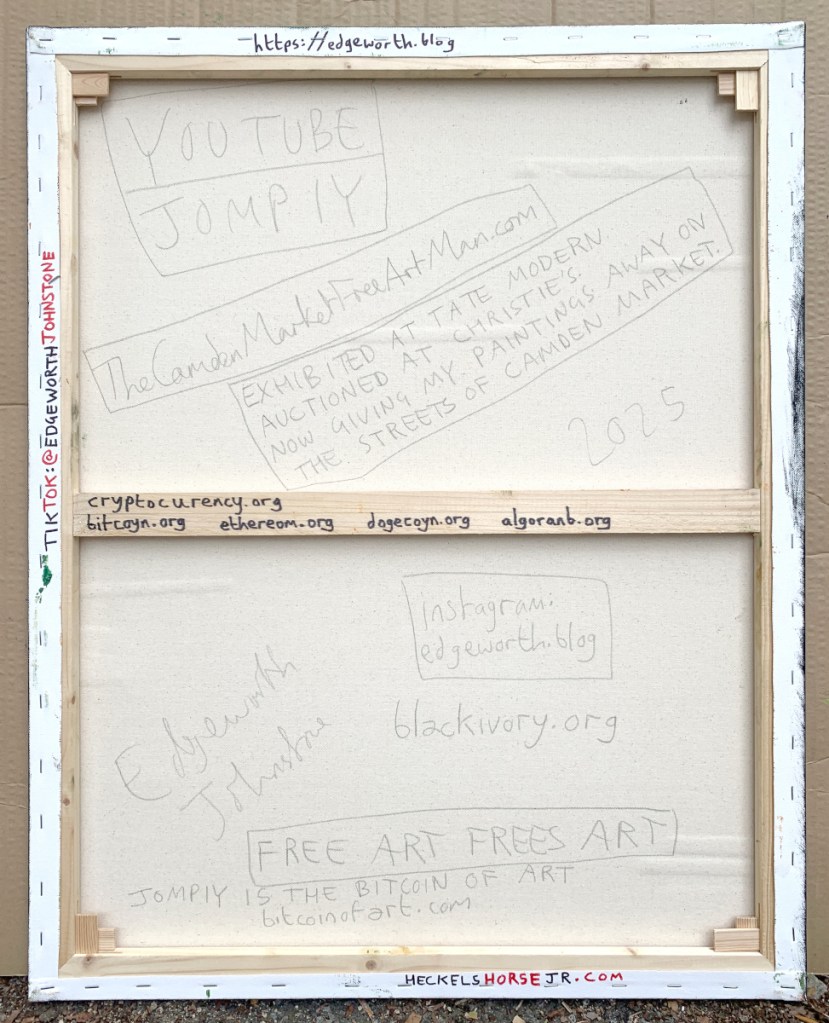 https://edgeworth.blog
YOUTUBE
JOMPIY
TheCamdenMarketFreeArtMan.com
EXHIBITED AT TATE MODERN.
AUCTIONED AT CHRISTIE'S.
NOW GIVING MY PAINTINGS AWAY ON
THE STREETS OF CAMDEN MARKET.
2025
TIKTOK:@EDGEWORTHJOHNSTONE
cryptocurency.org
bitcoyn.org ethereom.org dogecoyn.org algoranb.org
instagram:
edgeworth.blog
blackivory.org
Edgeworth
Johnstone
FREE ART FREES ART
JOMPIY IS THE BITCOIN OF ART
bitcoinofart.com
HECKELSHORSEJR.COM